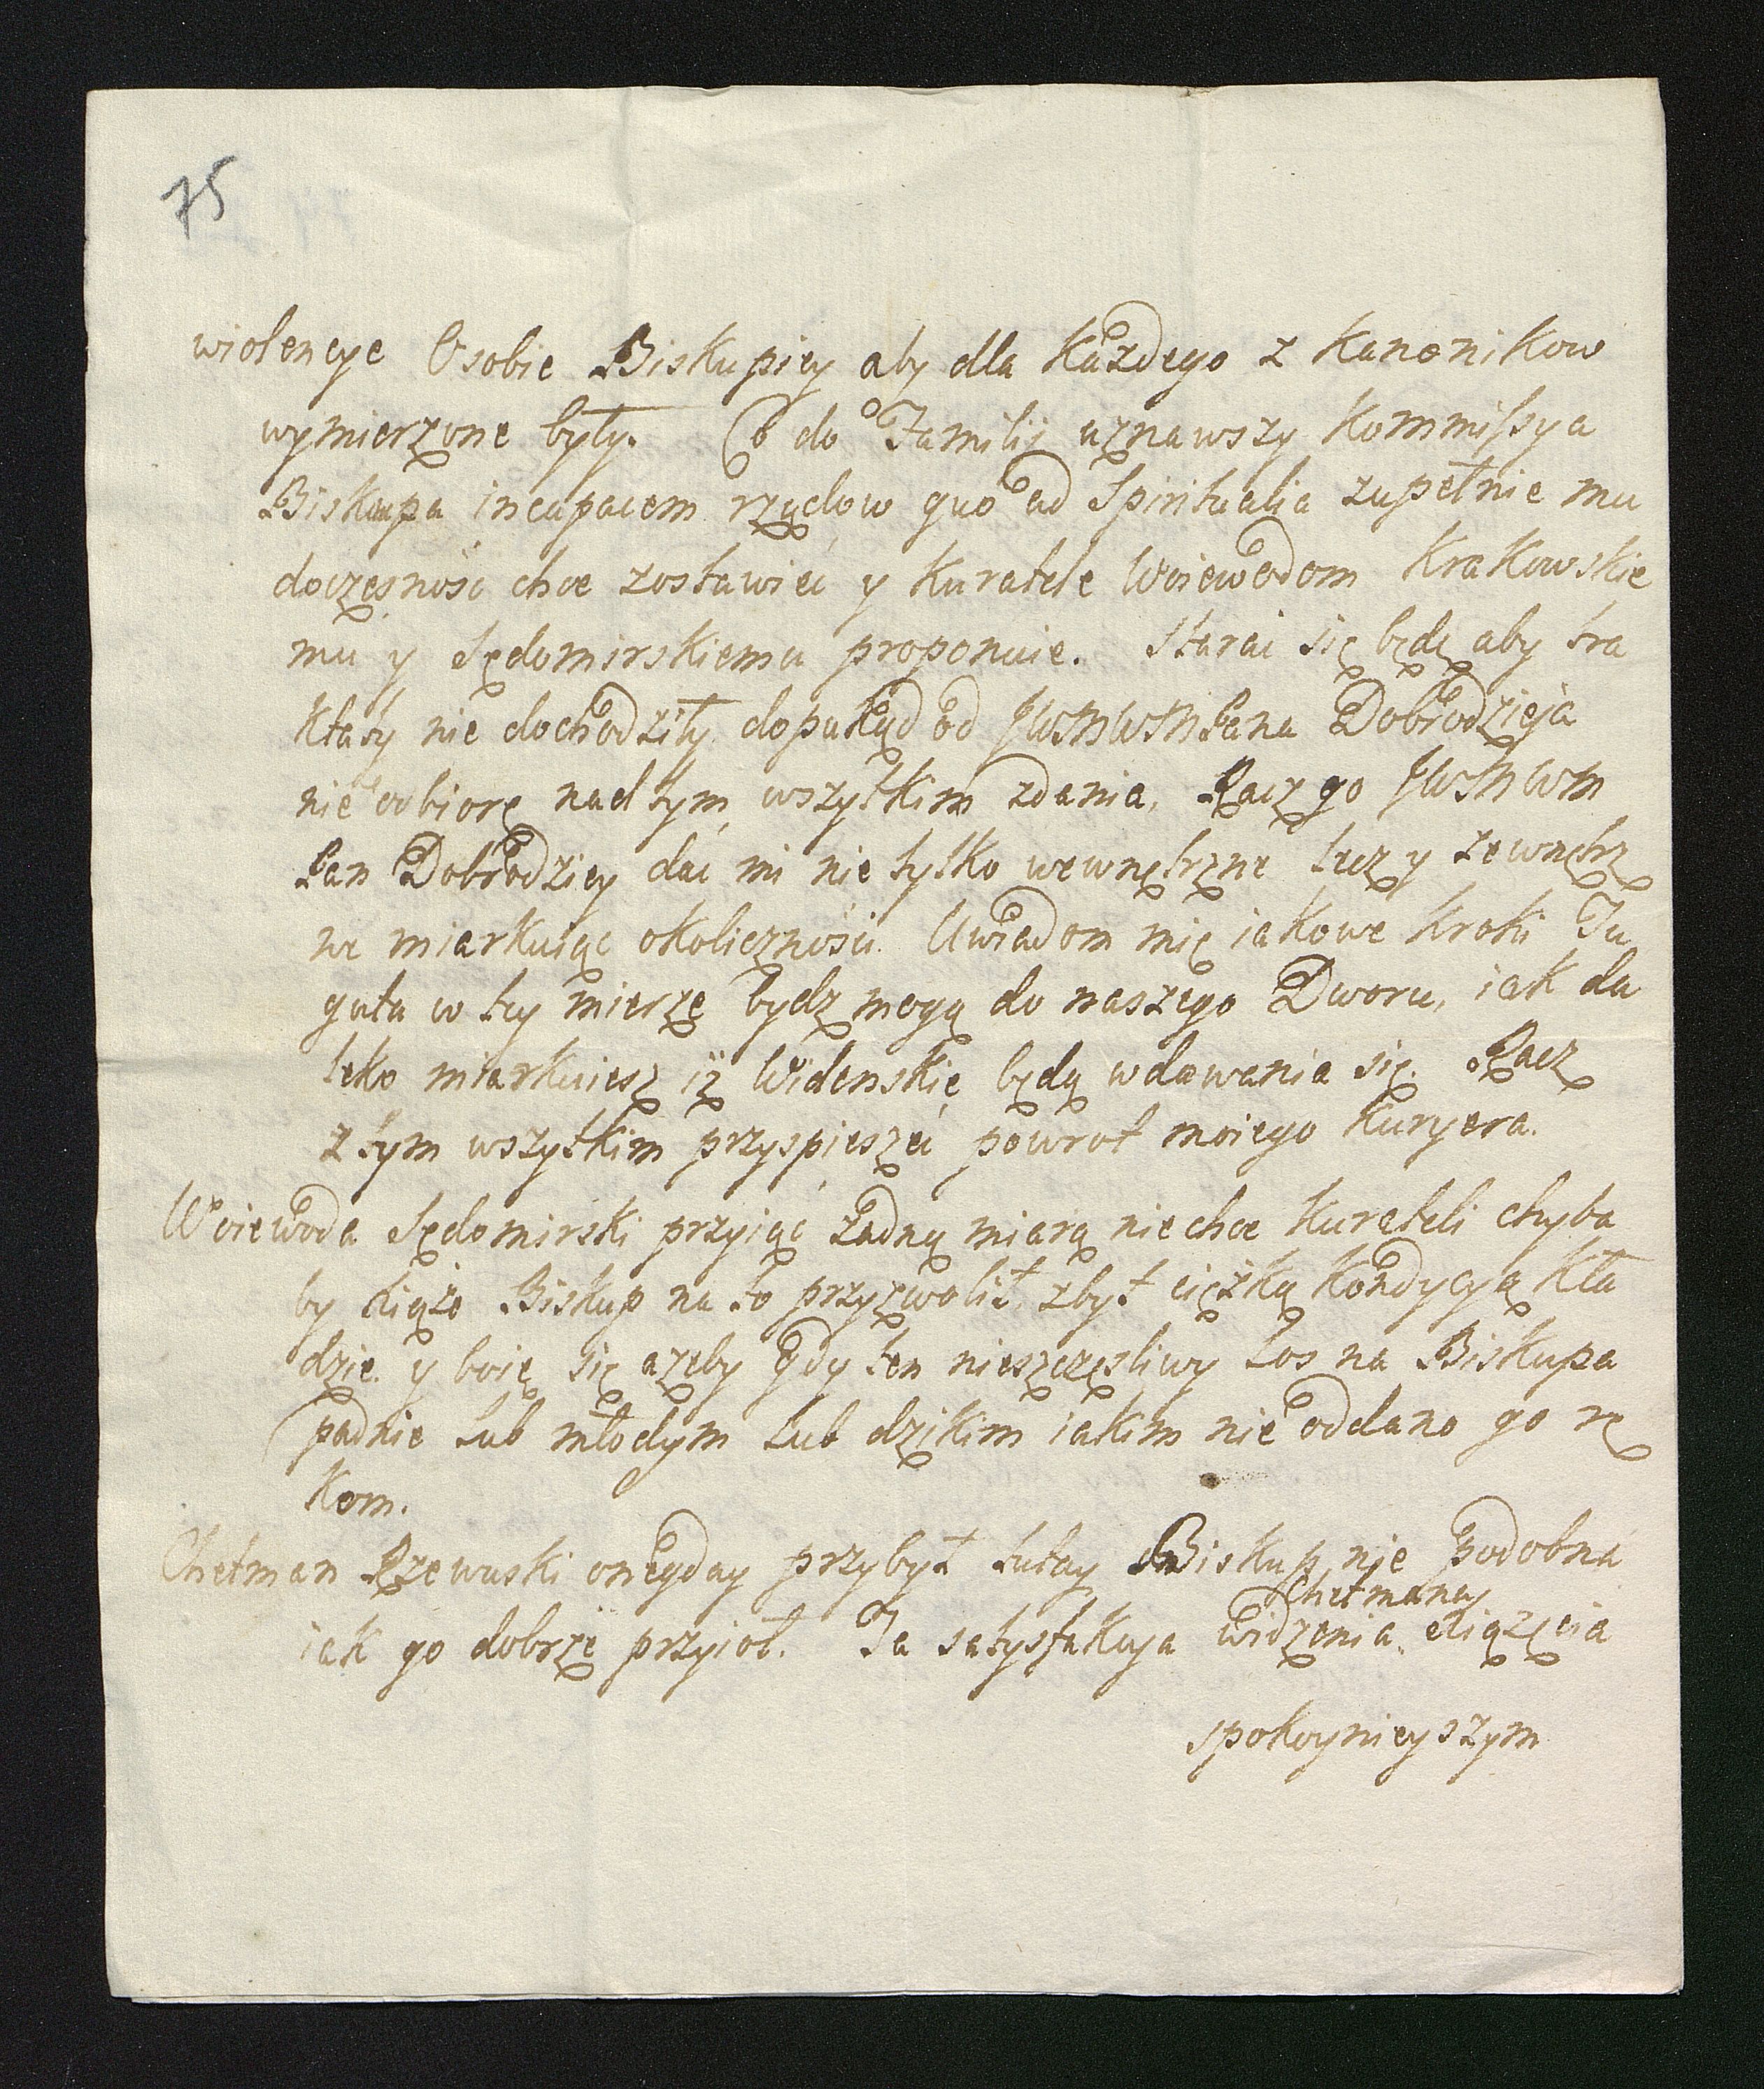 75
wiolencye Osobie Biskupiey aby dla każdego z Kanonikow
wymierzone były. Co do Familij uznawszy Kommissya
Biskupa incapacem rządow quo ad Spiritualia zupełnie mu
doczesność chce zostawieć y Kuratele Woiewodom Krakowskie
mu y Sędomirskiemu proponuie. Starać się będę aby tra
ktaty nie dochodziły dopukąd od JWMWMPana Dobrodzieja
nie odbiorę nad tym wszytkim zdania, Racz go JWMWM
Pan Dobrodziey dać mi nie tylko wewnętrzne lecz y zewnętrz
ne miarkuiąc okoliczności. Uwiadom mię iakowe kroki Tu
guta w tey mierze bydz mogą do naszego Dworu, iak da
leko miarkuiesz iż Widenskie będą wdawania się. Racz
z tym wszytkim przyspieszeć powrot moiego Kuryera.
Woiewoda Sędomirski przyiąć żadną miarą nie chce Kurateli chyba
by Xiąże Biskup na to przyzwolił, zbyt ciężką kondycyą kła
dzie. y boię się azeby gdy ten nieszczęsliwy los na Biskupa
padnie lub młodym lub dzikim iakim nie oddano go rę
kom.
Chetman Rzewuski onegday przybył tutay Biskup nie podobna
iak go dobrze przyioł. Ta satysfakcya widzenia Chetmana Xiążęcia
spokoynieyszym